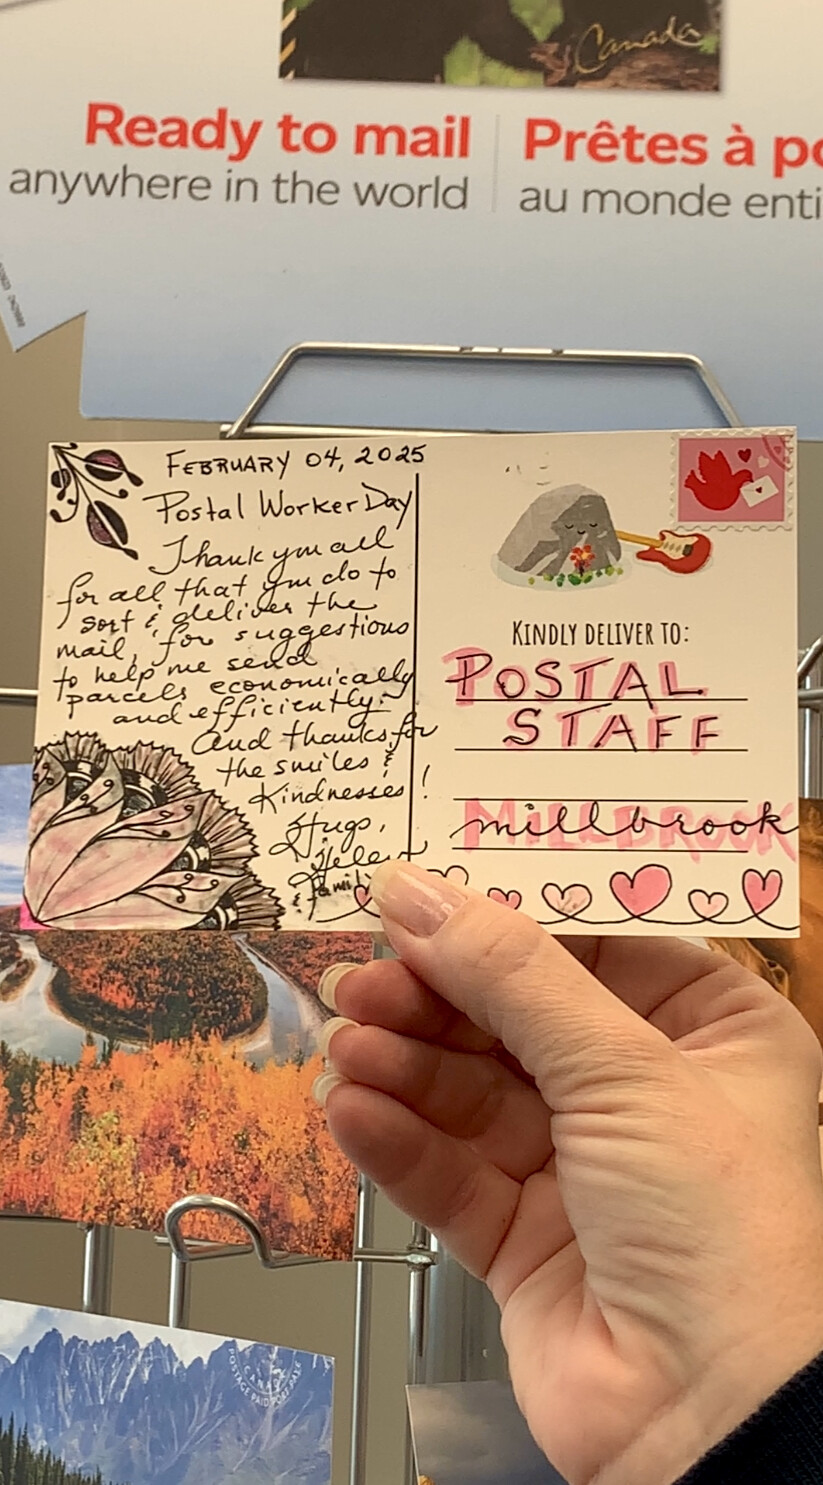 Canada
Ready to mail
anywhere in the world
Prêtes à po
au monde enti
FEBRUARY 04, 2025
Postal Worker Day
Thank you all
for all that you do to
sort & deliver the
mail, for suggestions
to help me send
parcels economically
and efficiently.
And thanks for
the smiles &
Kindnesses!
Hugs,
Helen
& family
KINDLY DELIVER TO:
POSTAL
STAFF
millbrook
CANADA
POSTAGE PAID PORT PAYÉ